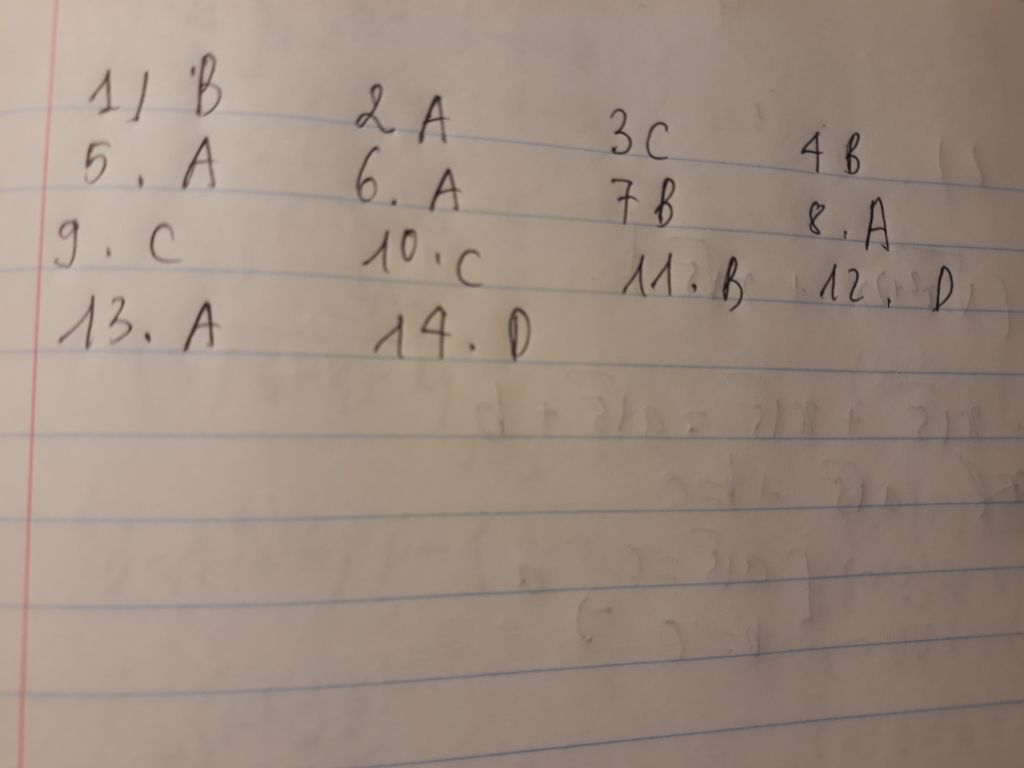 1) B 2 A 3 C 4 B
5. A 6. A 7 B 8. A
9. C 10. C 11. B 12. D
13. A 14. D